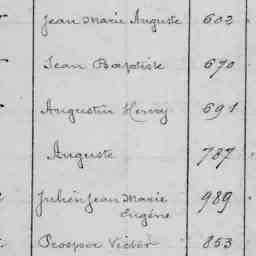 Jean Marie Auguste 602
Jean Baptiste 670
Augustin Henry 691
Auguste 787
Julien Jean Marie 989
Eugène
Prosper Victor 853